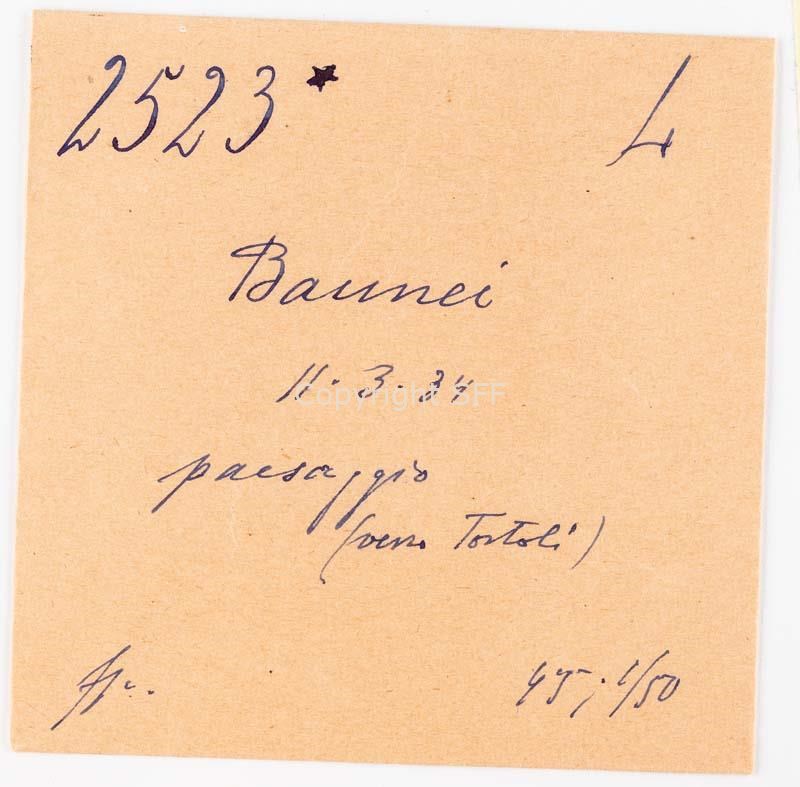 2523* L
Baunei
11.3.34
Copyright SFF
paesaggio
(verso Tortolì)
45; 1/50